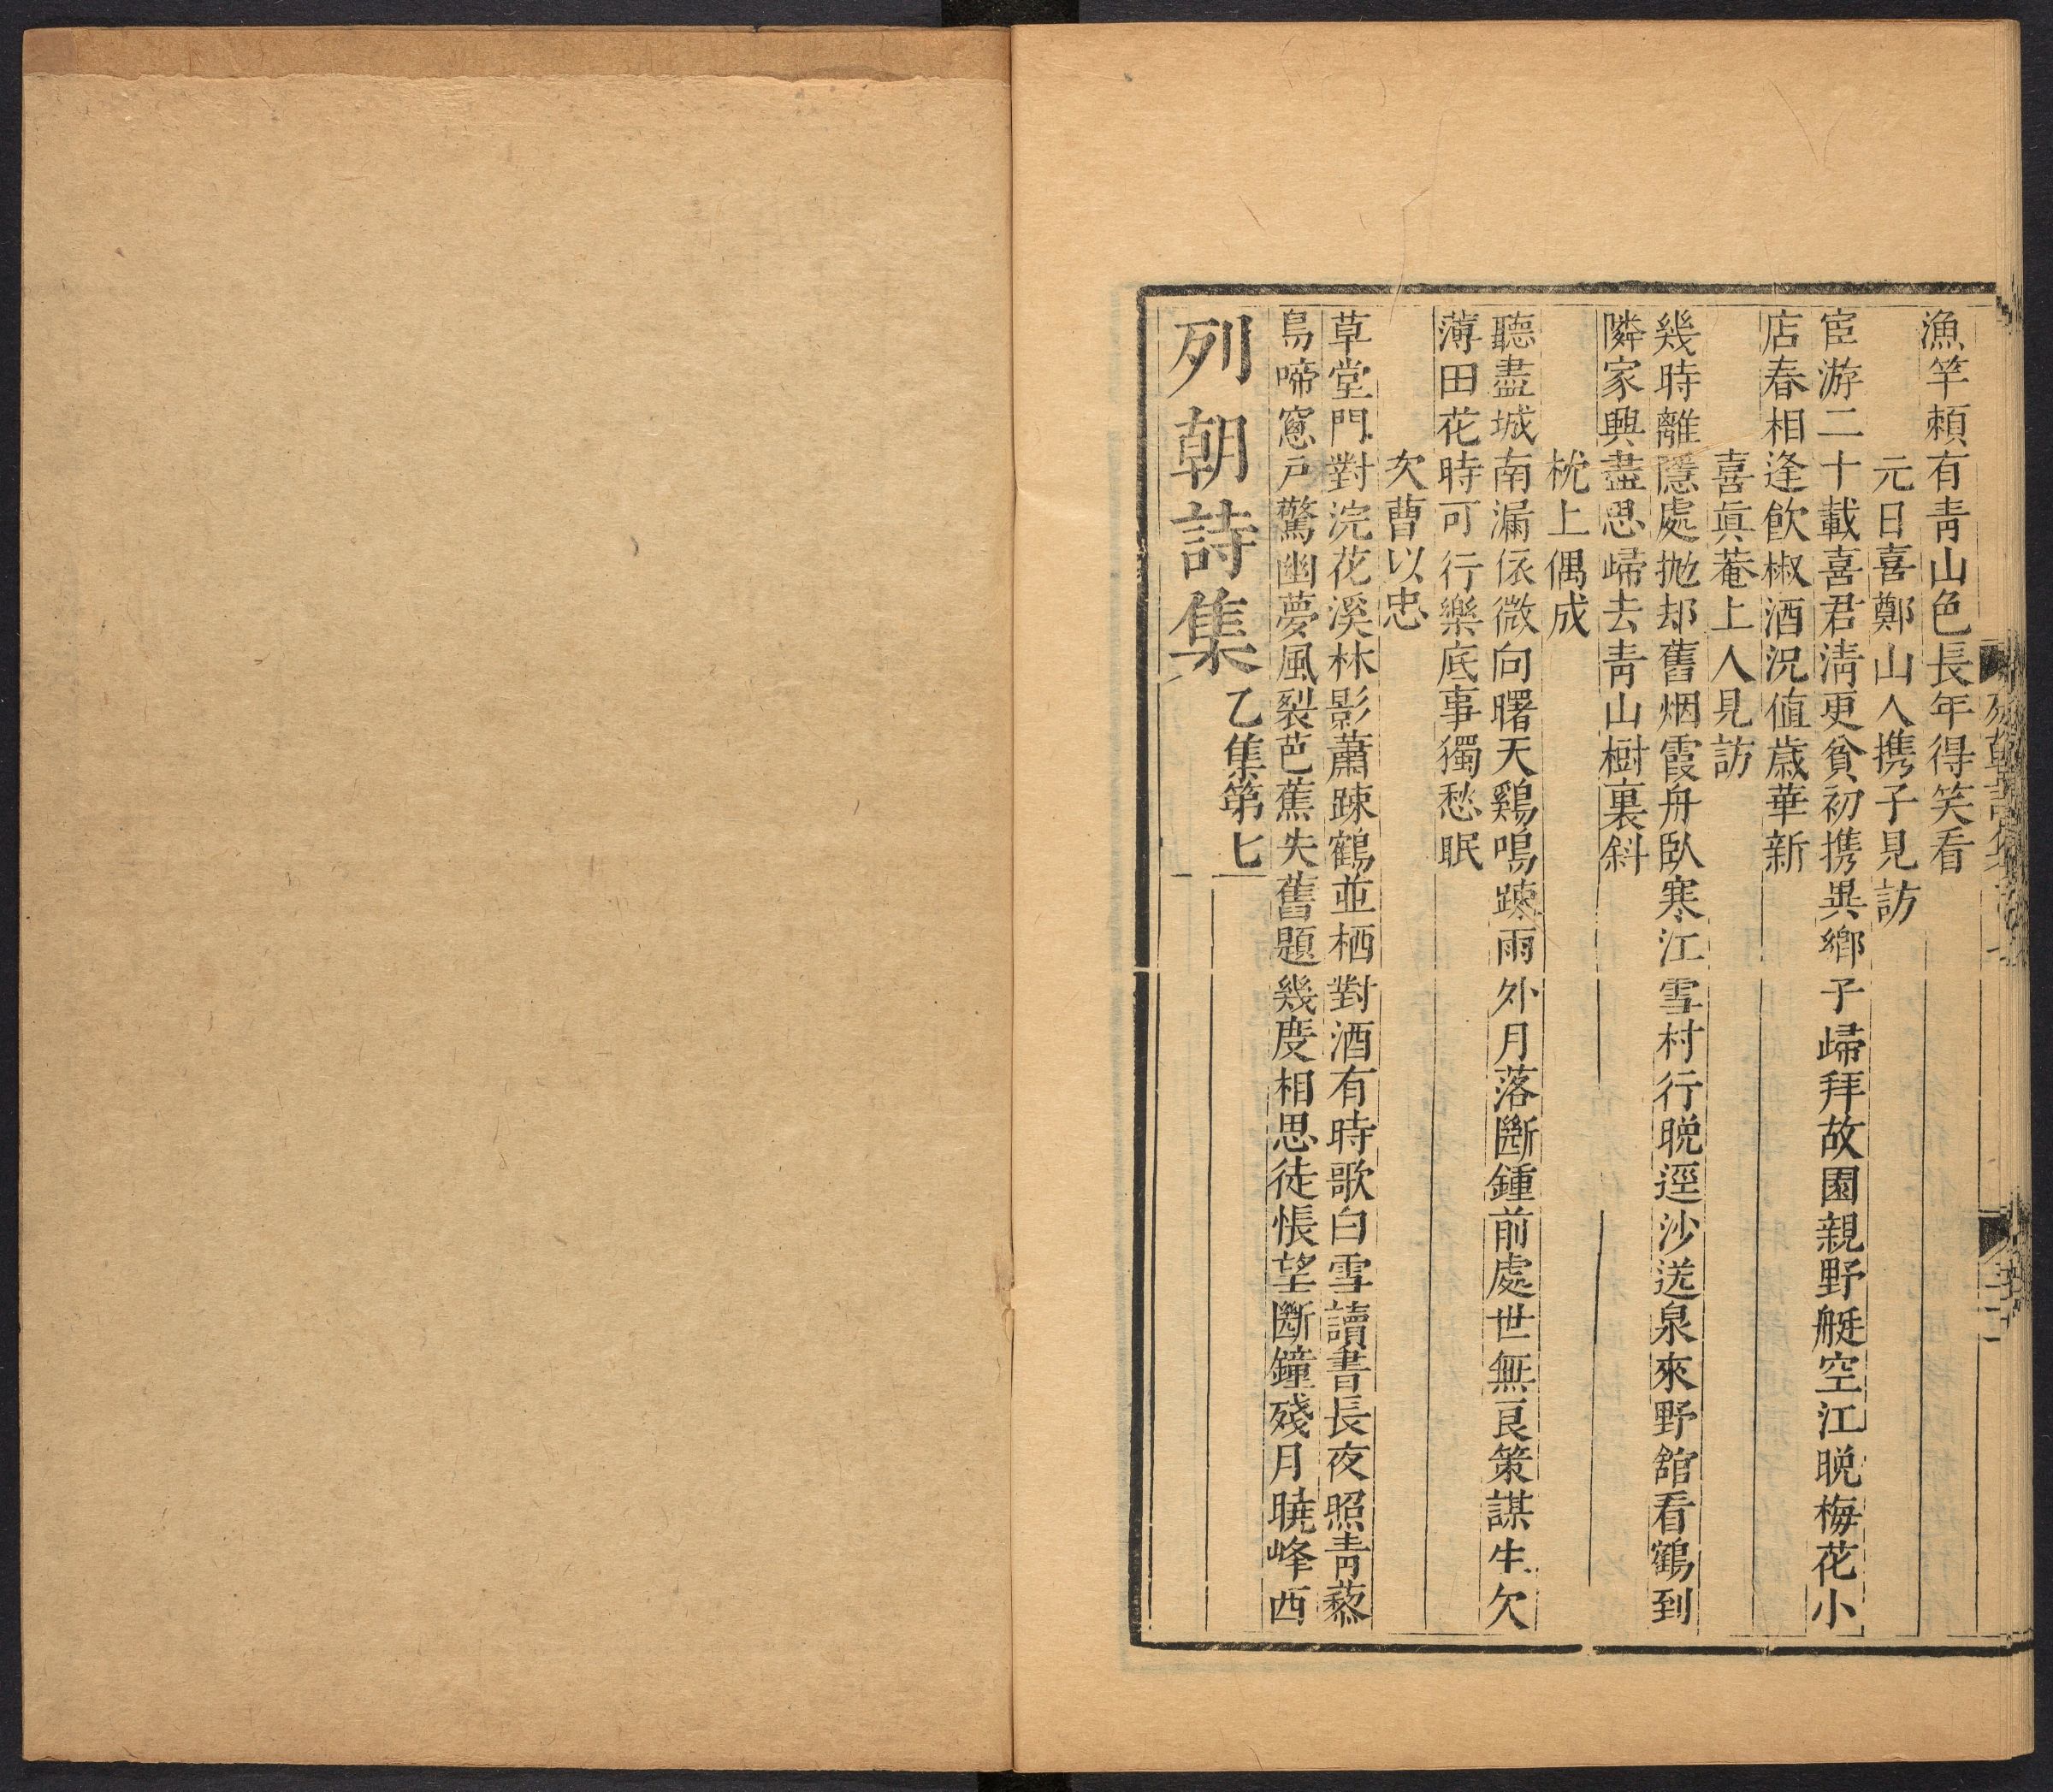 漁竿頼有青山色長年得笑看
元日喜鄭山人携子見訪
宦游二十載喜君淸更貧初携異鄕子歸拜故園親野艇空江晩梅花小
店春相逢飮椒酒況値歳華新
喜眞菴上人見訪
幾時離隱處抛却舊烟霞舟臥寒江雪村行晩逕沙送泉來野舘看鶴到
隣家興盡思歸去青山樹裏斜
枕上偶成
聽盡城南漏依微向曙天鷄鳴踈雨外月落斷鍾前處世無良策謀生欠
薄田花時可行樂底事獨愁眠
次曹以忠
草堂門對浣花溪林影蕭踈鶴並栖對酒有時歌白雪讀書長夜照青藜
鳥啼窻戸驚幽夢風裂芭蕉失舊題幾度相思徒悵望斷鐘殘月曉峰西
列朝詩集乙集第七